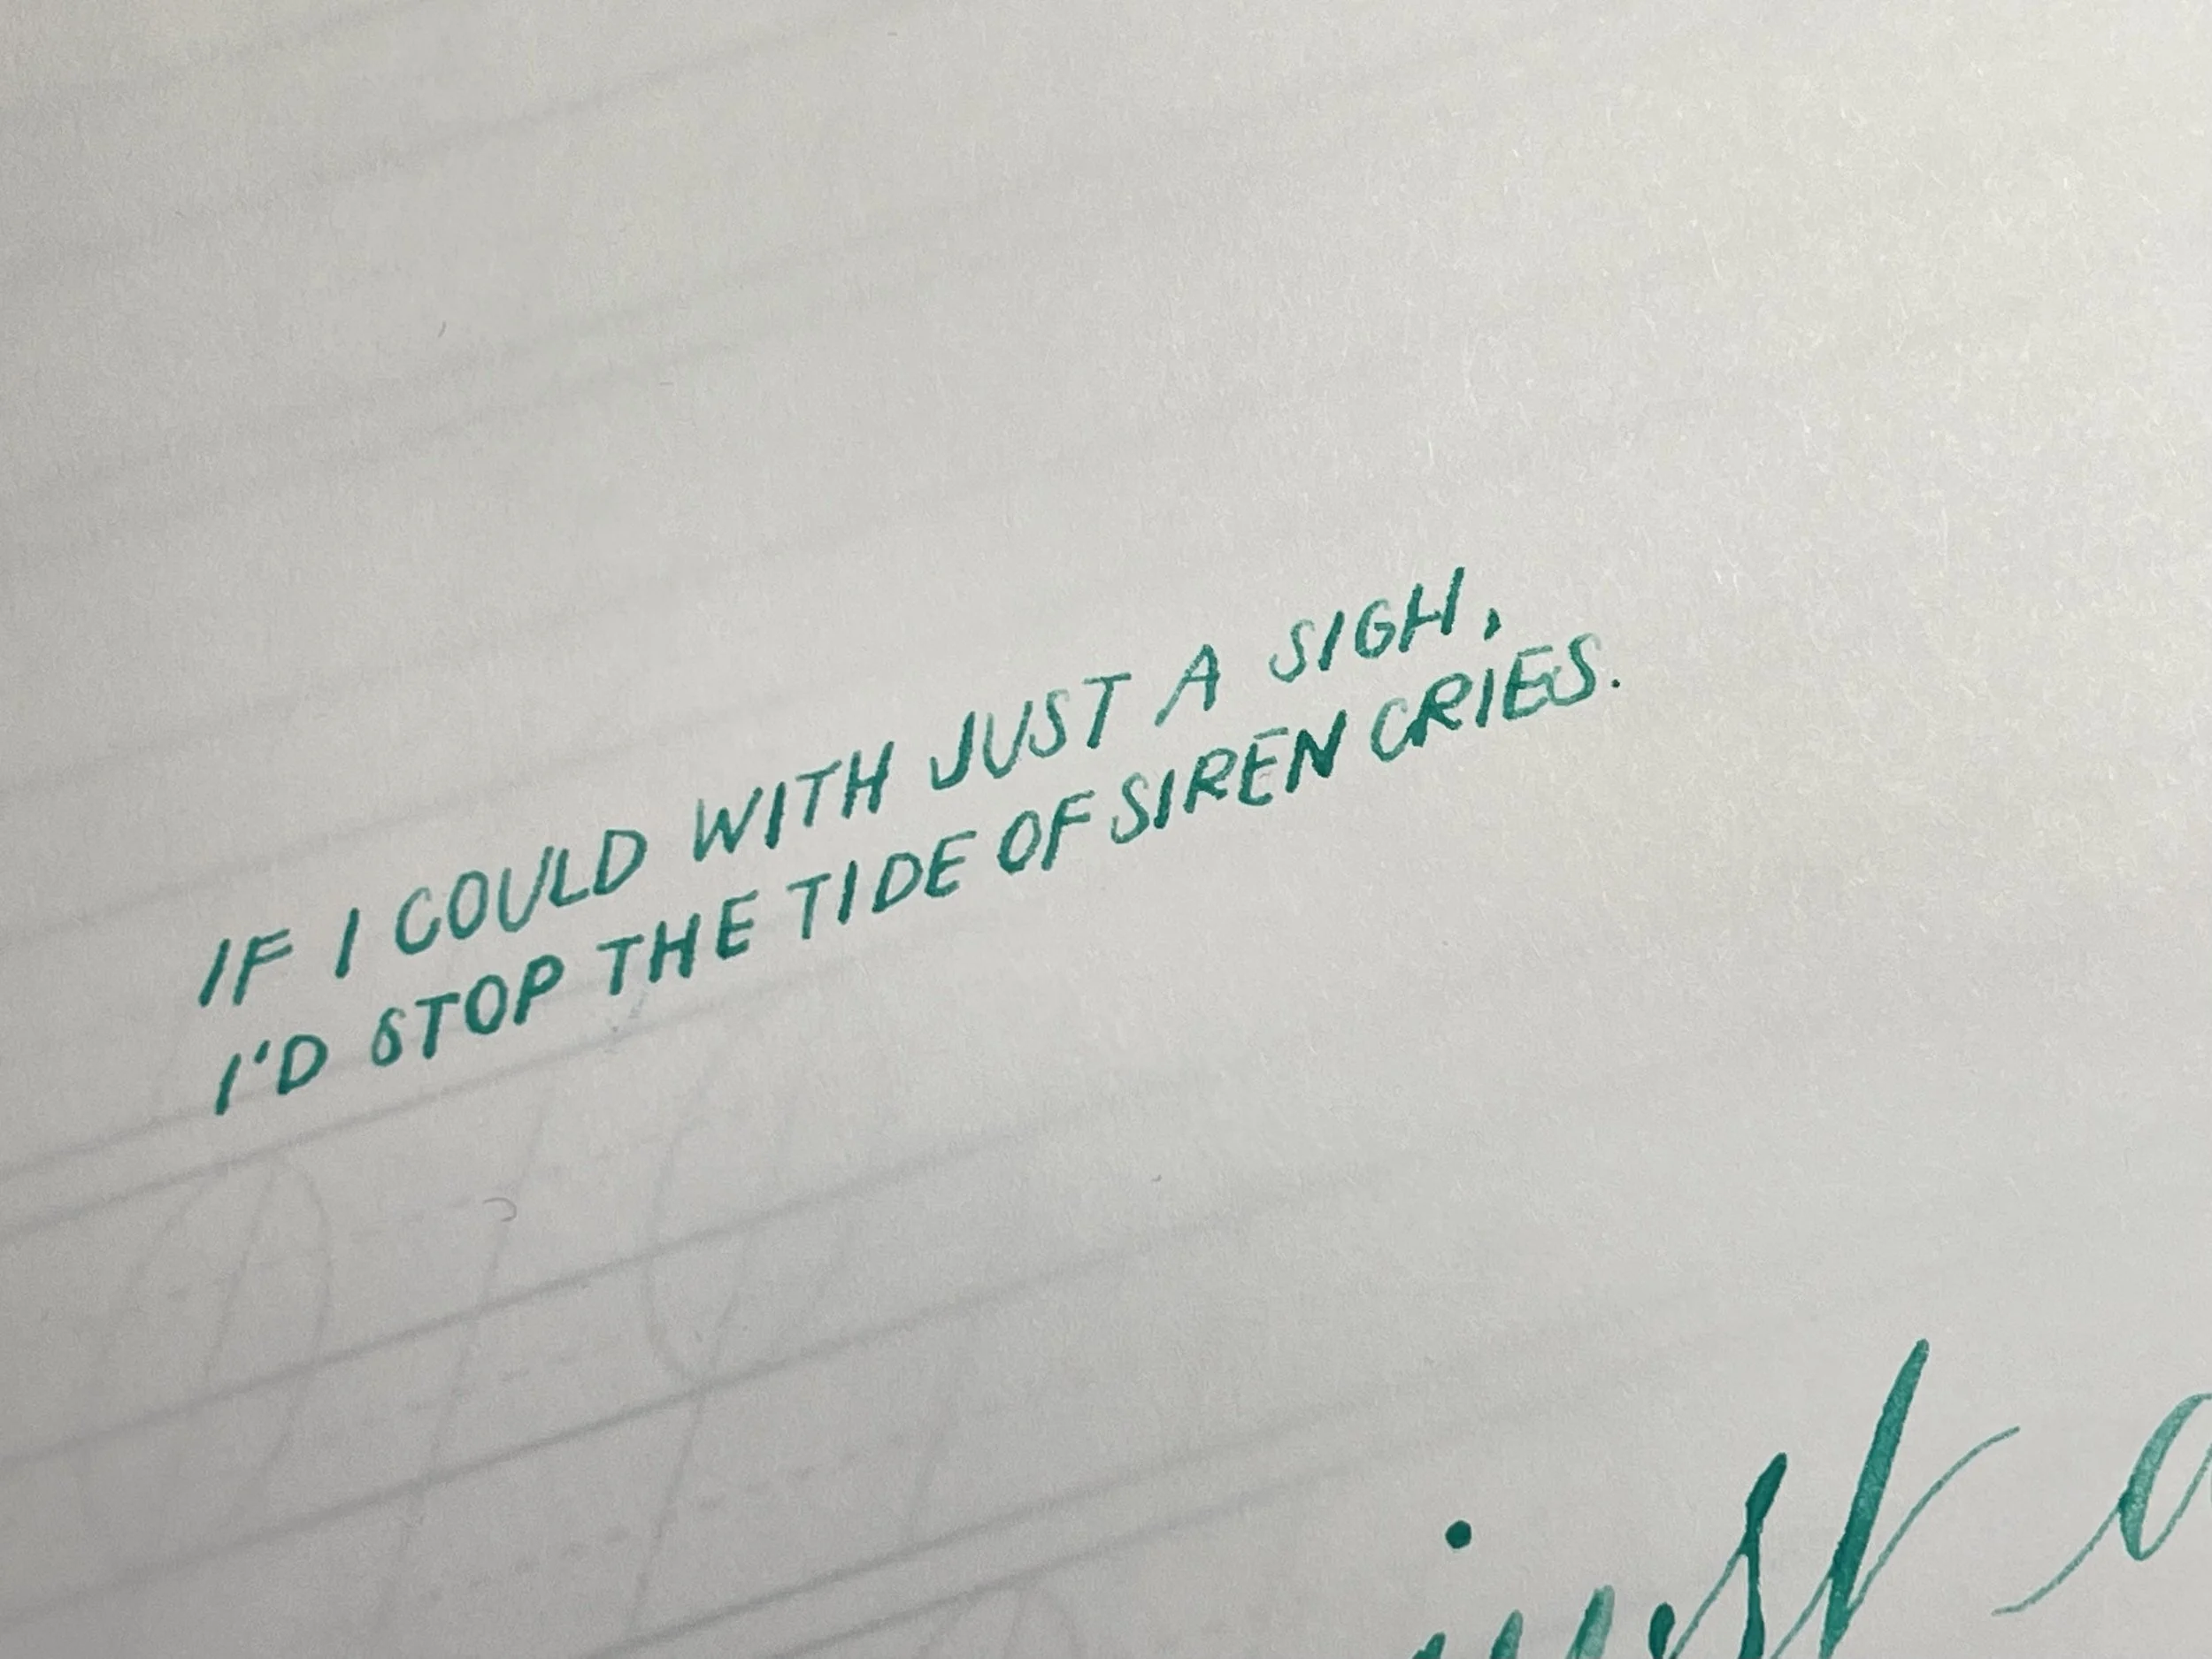 IF I COULD WITH JUST A SIGH,
I'D STOP THE TIDE OF SIREN CRIES.
just a